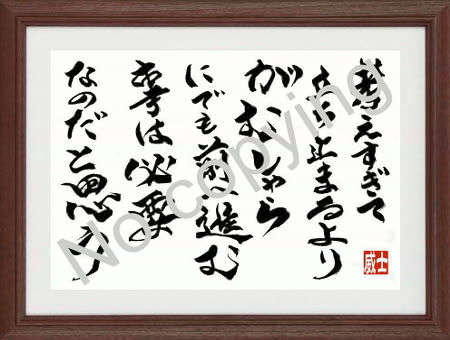 考えすぎて
立ち止まるより
がむしゃら
にでも前へ進む
事は必要
なのだと思う
威士
No copying